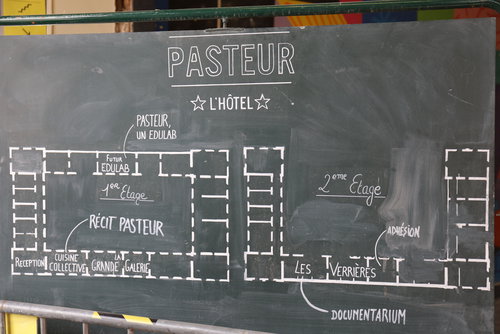 PASTEUR
☆ L'HÔTEL ☆
PASTEUR,
UN EDULAB
FUTUR
EDULAB
1er Etage
RÉCIT PASTEUR
RECEPTION
CUISINE
COLLECTIVE
LA
GRANDE GALERIE
2eme Etage
ADHÉSION
LES VERRIÈRES
DOCUMENTARIUM